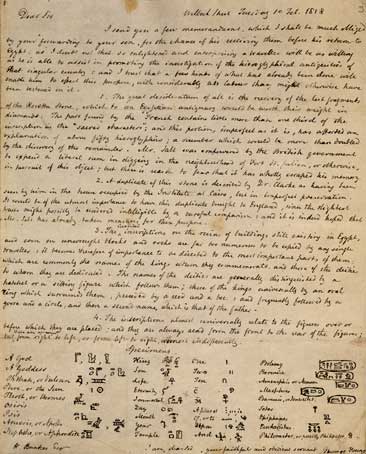 Dear Sir Welbeck Street Tuesday 10 Feb. 1818
I send you a few memorandums, which I shall be much obliged
by your forwarding to your son, for the chance of his receiving them before his return to
Egypt; as I doubt not that so enlightened and enterprising a traveller will be as willing
as he is able to assist in promoting the investigation of the hieroglyphical antiquities of
that singular country; and I trust that a few hints of what has already been done will
enable him to effect this purpose, with considerably less labour than might otherwise have
been required in it.
1. The great desideratum of all is the recovery of the lost fragments
of the Rosetta Stone, which to an Egyptian antiquary would be worth their weight in
diamonds. The part found by the French contains little more than one third of the
inscription in the "sacred characters"; and this portion, imperfect as it is, has afforded an
explanation of above fifty hieroglyphics; a number which would be more than doubled
by the discovery of the remainder. Mr. Salt was empowered by the British government
to expend a liberal sum in digging in the neighbourhood of Fort St. Julien, or otherwise,
in pursuit of this object; but there is reason to fear that it has wholly escaped his memory.
2. A duplicate of this stone is described by Dr. Clarke as having been
seen by him in the house occupied by the Institute at Cairo, but in imperfect preservation.
It would be of the utmost importance to have this duplicate brought to England, since the slightest
traces might possibly be rendered intelligible by a careful comparison; and it is indeed hoped that
Mr. Salt has already taken measures for this purpose.
3. The inscriptions on the ruins of buildings still existing in Egypt,
and even on unwrought blocks and rocks are far too numerous to be copied by any single
traveller; it becomes therefore of importance to be directed to the most important parts of them,
which are commonly the names of the kings whom they commemorate, and those of the deities
to whom they are dedicated. The names of the deities are generally distinguished by a
hatchet or a sitting figure which follows them; those of the kings universally by an oval
ring which surrounds them, preceded by a reed and a bee; and frequently followed by a
goose and a circle, and then a second name, which is that of the father.
4. The inscriptions almost universally relate to the figures over or
before which they are placed: and they are always read from the front to the rear of the figures;
but from right to left, or from left to right, indifferently.
Specimens
A God King One Ptolemy
A Goddess Son Two Berenice
Phthah, or Vulcan Life Ten
Phre, or the Sun Eternal
Thoth, or Hermes Immortal
Osiris Day
Isis Month
Year
Nephthe, or Aphrodite Temple And
W. Bankes Esq. I am, dear Sir, your faithful and obedient servant Thomas Young